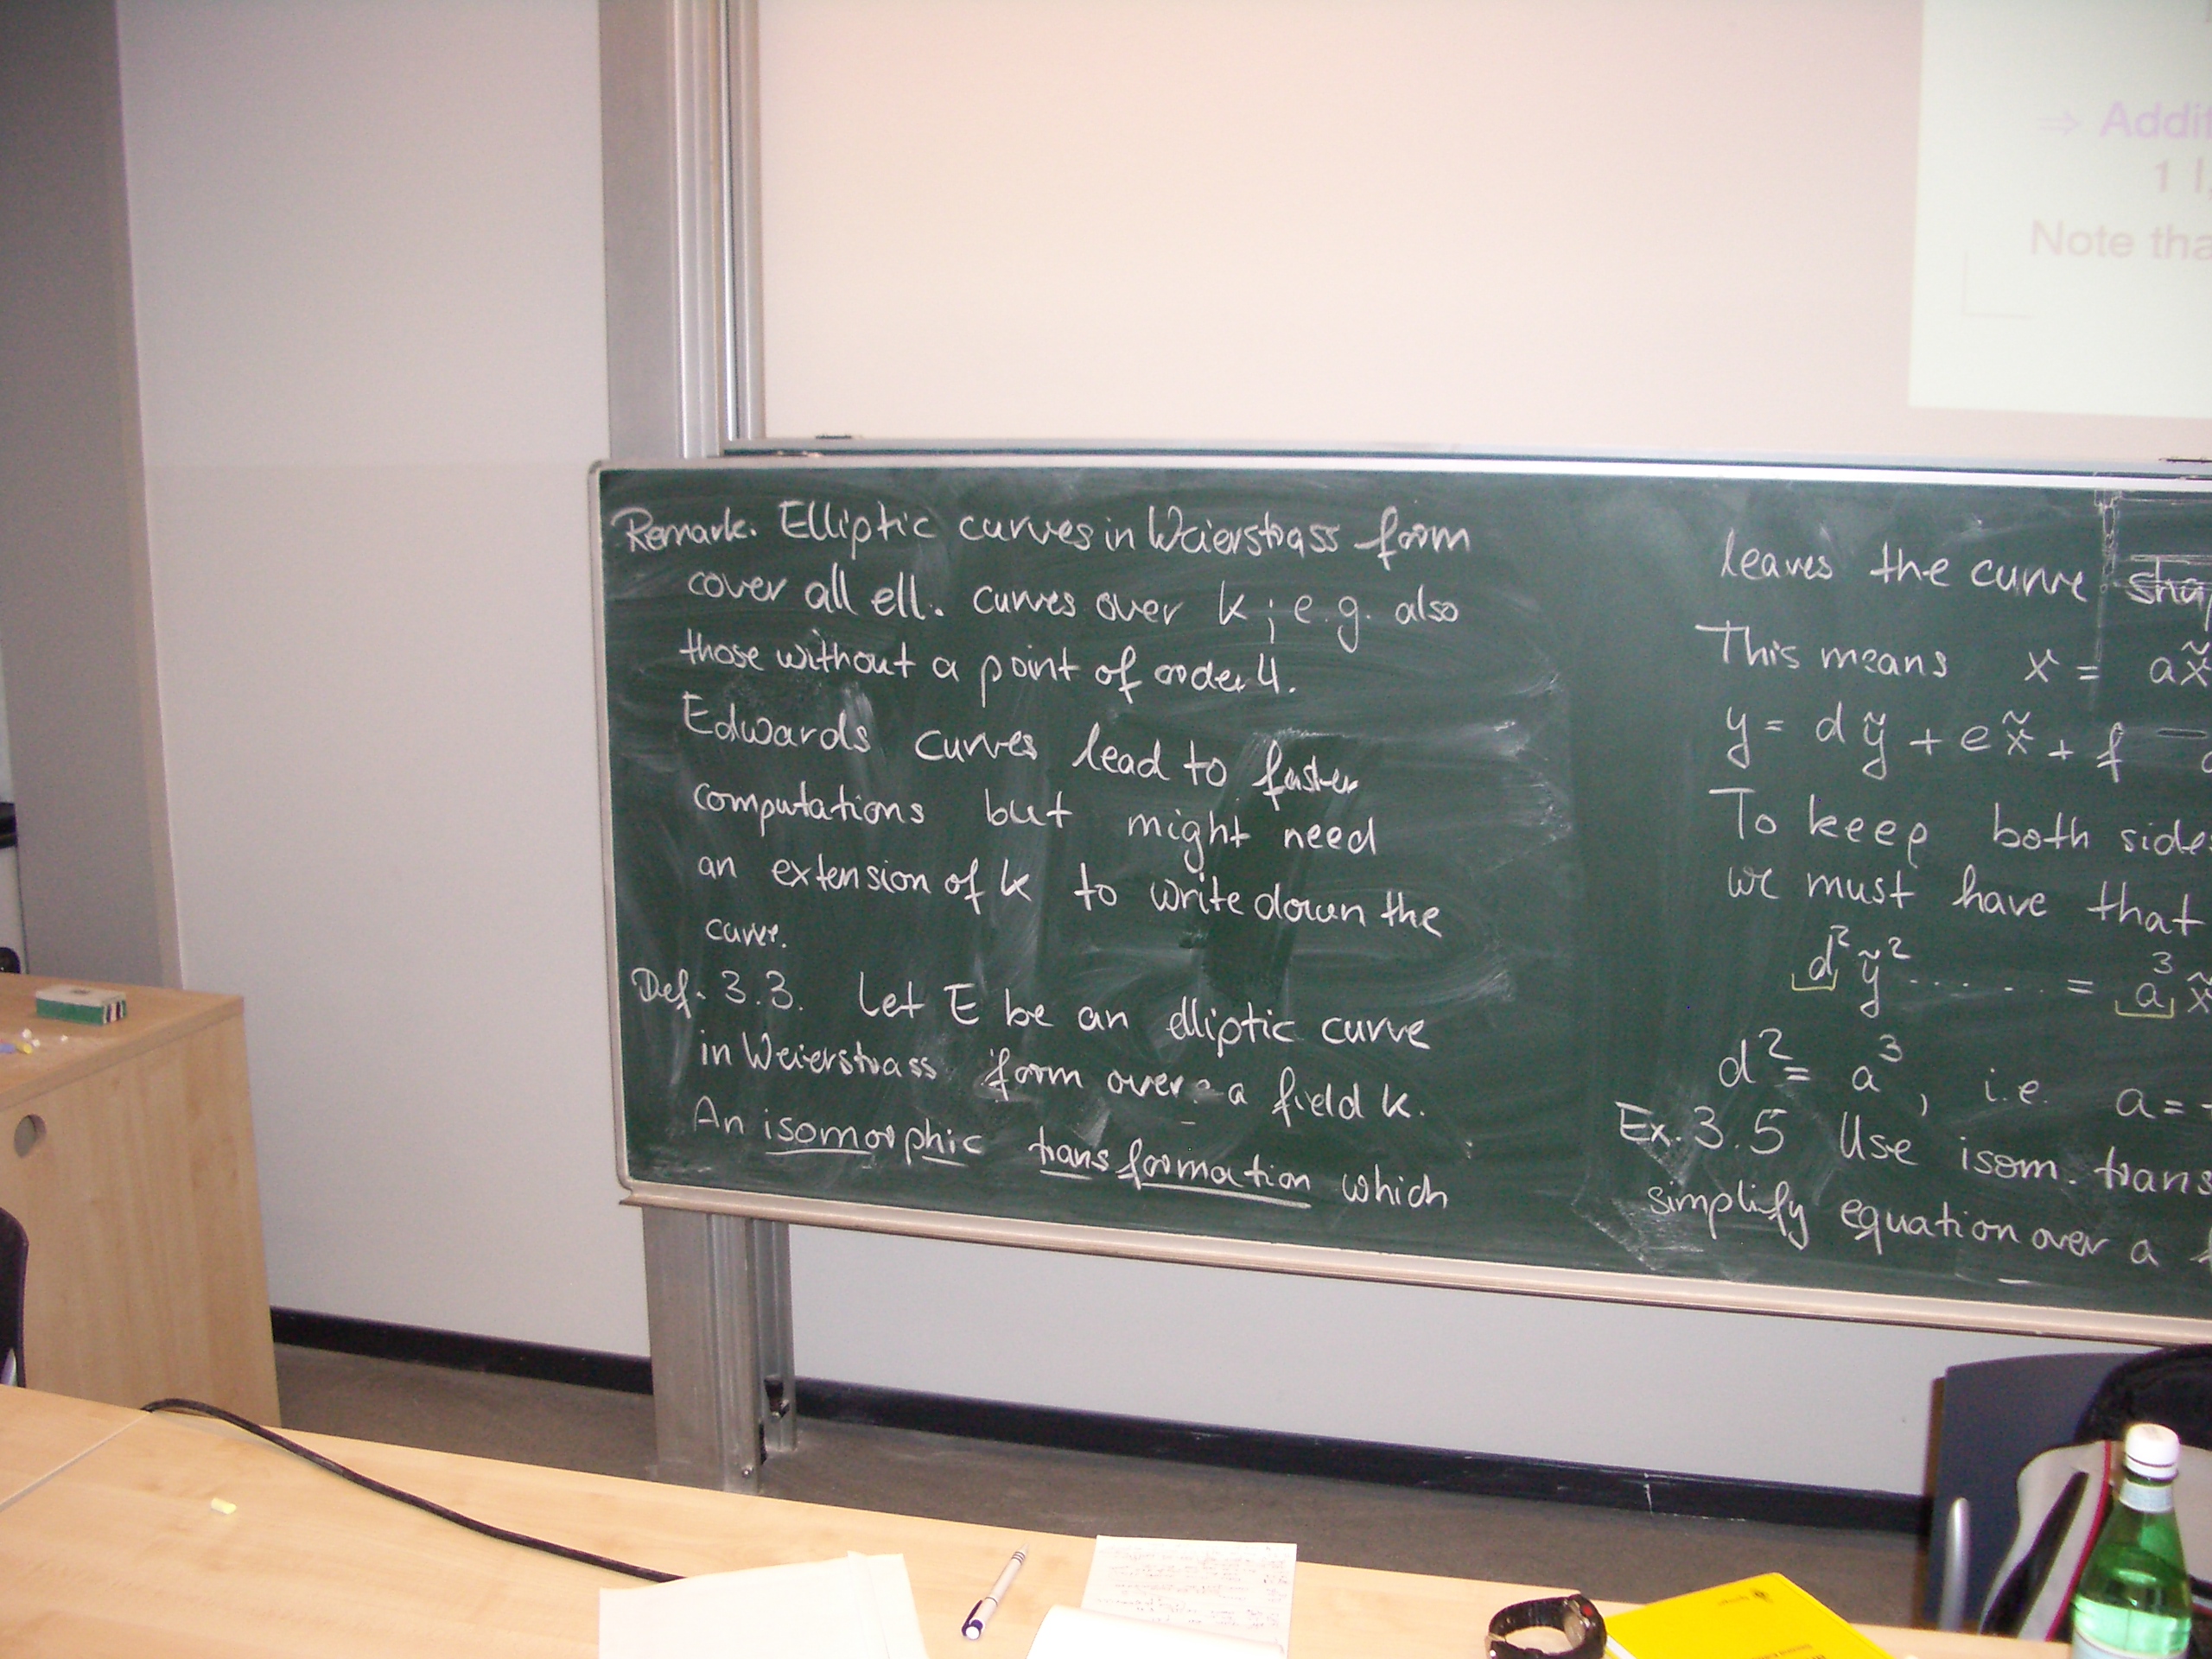 Remark. Elliptic curves in Weierstrass form
cover all ell. curves over k; e.g. also
those without a point of order 4.
Edwards curves lead to faster
computations but might need
an extension of k to write down the
curve.
Def. 3.3. Let E be an elliptic curve
in Weierstrass form over a field k.
An isomorphic transformation which
leaves the curve
This means x = ax̃
y = dỹ + ex̃ + f
To keep both sides
we must have that
d² ỹ² ...... = a³ x̃
d² = a³, i.e. a =
Ex. 3.5 Use isom. trans
simplify equation over a
⇒ Addit
1 I,
Note tha